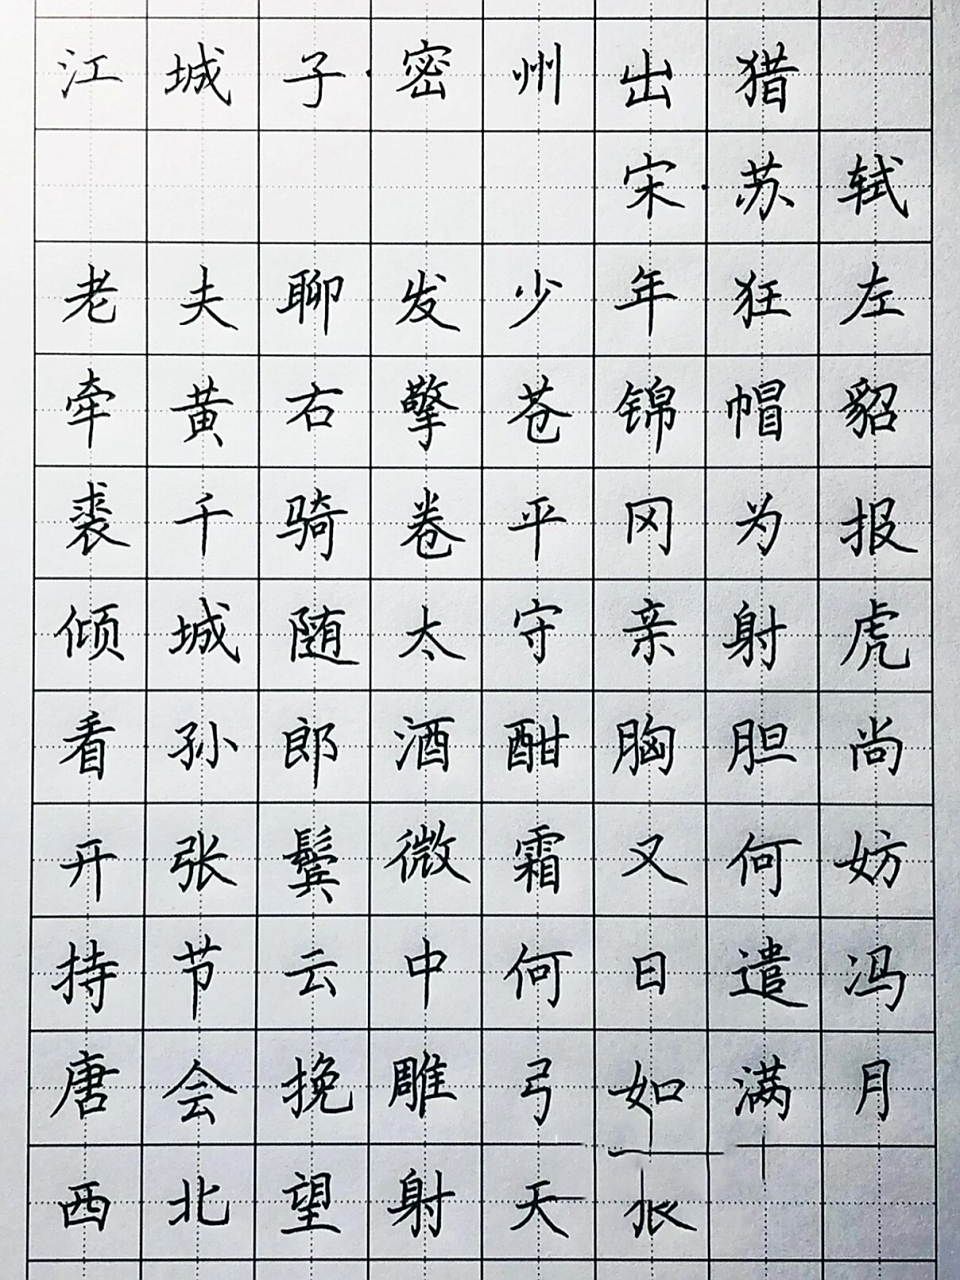 江城子·密州出猎
宋·苏轼
老夫聊发少年狂左
牵黄右擎苍锦帽貂
裘千骑卷平冈为报
倾城随太守亲射虎
看孙郎酒酣胸胆尚
开张鬓微霜又何妨
持节云中何日遣冯
唐会挽雕弓如满月
西北望射天